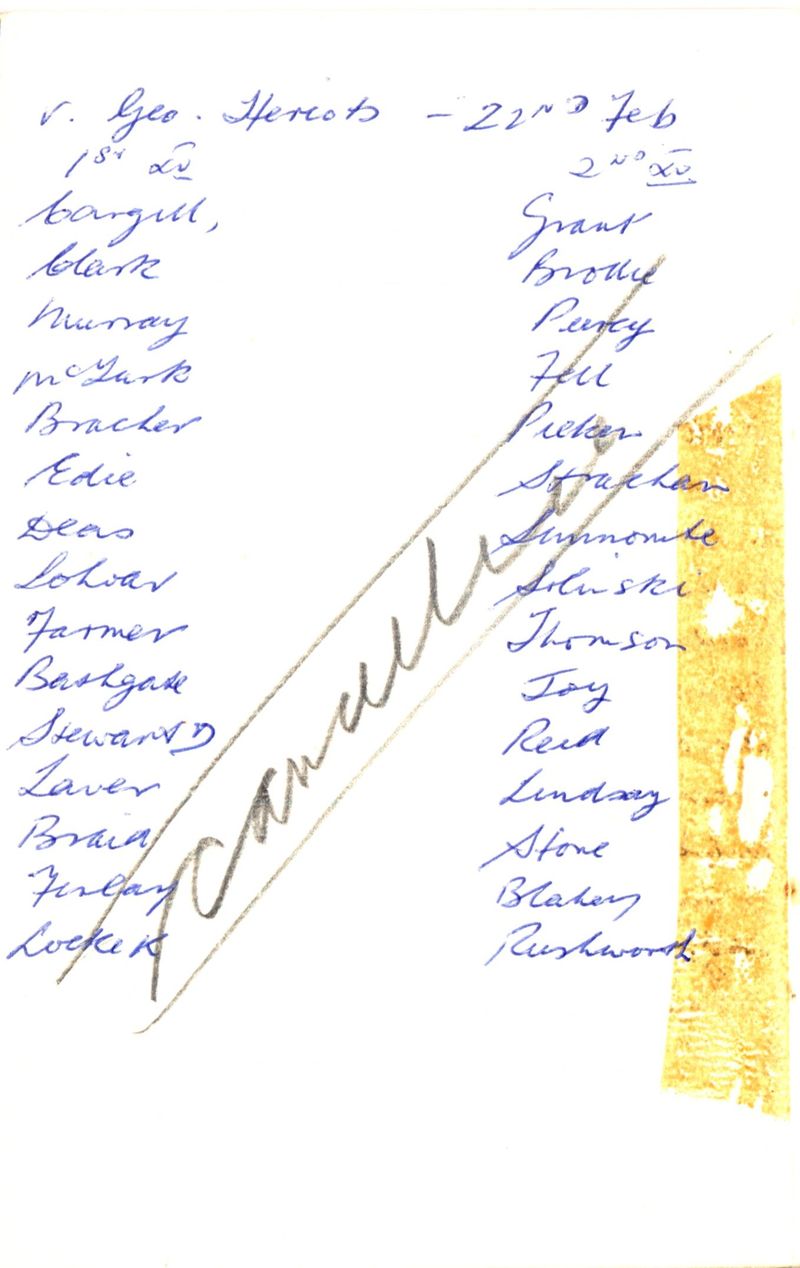 v. Geo. Heriots - 22ND Feb
1ST XV 2ND XV
Cargill, Grant
Clark Brodie
Murray Percy
McTurk Fell
Bracher
Edie Strachan
Deas
Solinski
Farmer Thomson
Bathgate Joy
Stewart D Reid
Laver Lindsay
Braid Stone
Finlay Blakey
Locke K Rushworth
cancelled